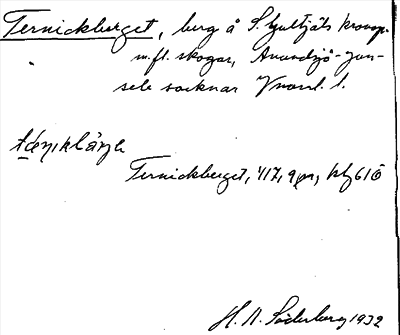 Ternickberget, berg å S. Gulsjöls kronop.
m. fl. skogar, Anundsjö-Jun-
sele socknar Vnorrl. l.
Ternickberget, 417, 9 gn, bl 61 ö
H. A. Söderberg 1932